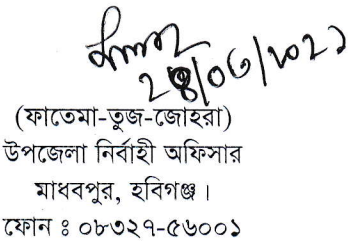 (ফাতেমা-তুজ-জোহরা)
উপজেলা নির্বাহী অফিসার
মাধবপুর, হবিগঞ্জ ।
ফোন ঃ ০৮৩২৭-৫৬০০১